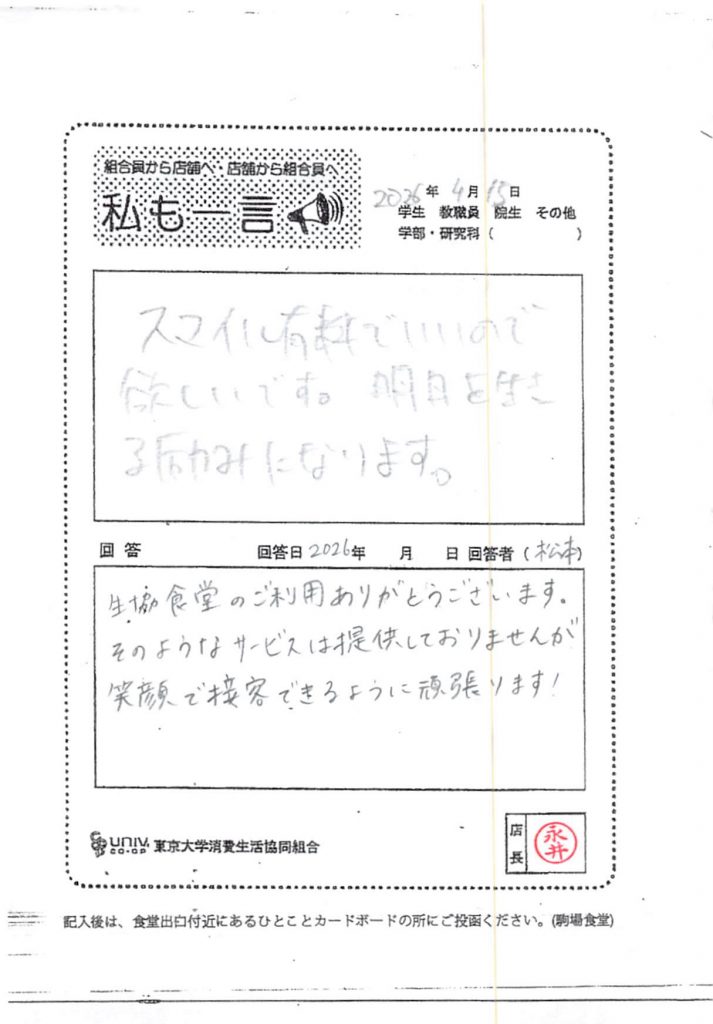 組合員から店舗へ・店舗から組合員へ
私も一言
2026年 4月 15日
学生 教職員 院生 その他
学部・研究科 ( )
スマイル有料でいいので
欲しいです。 明日を生き
る励みになります。
回 答 回答日 2026年 月 日 回答者 (松本)
生協食堂のご利用ありがとうございます。
そのようなサービスは提供しておりませんが
笑顔で接客できるように頑張ります!
UNIV. CO-OP 東京大学消費生活協同組合
店長 永井
記入後は、食堂出口付近にあるひとことカードボードの所にご投函ください。(駒場食堂)